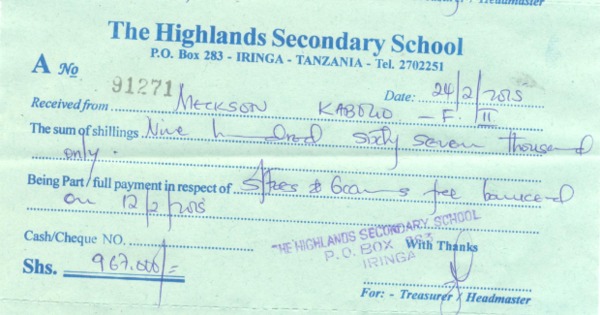 Treasurer / Headmaster
The Highlands Secondary School
P.O. Box 283 - IRINGA - TANZANIA - Tel. 2702251
A No 91271
Date: 24/2/2015
Received from MECKSON KABOLIO - F. II
The sum of shillings Nine hundred sixty seven thousand
only.
Being Part / full payment in respect of S/fees & Exams fee
on 12/2/2015
Cash/Cheque NO.
THE HIGHLANDS SECONDARY SCHOOL
P.O. BOX 283
IRINGA
With Thanks
Shs. 967.000/=
For: - Treasurer / Headmaster